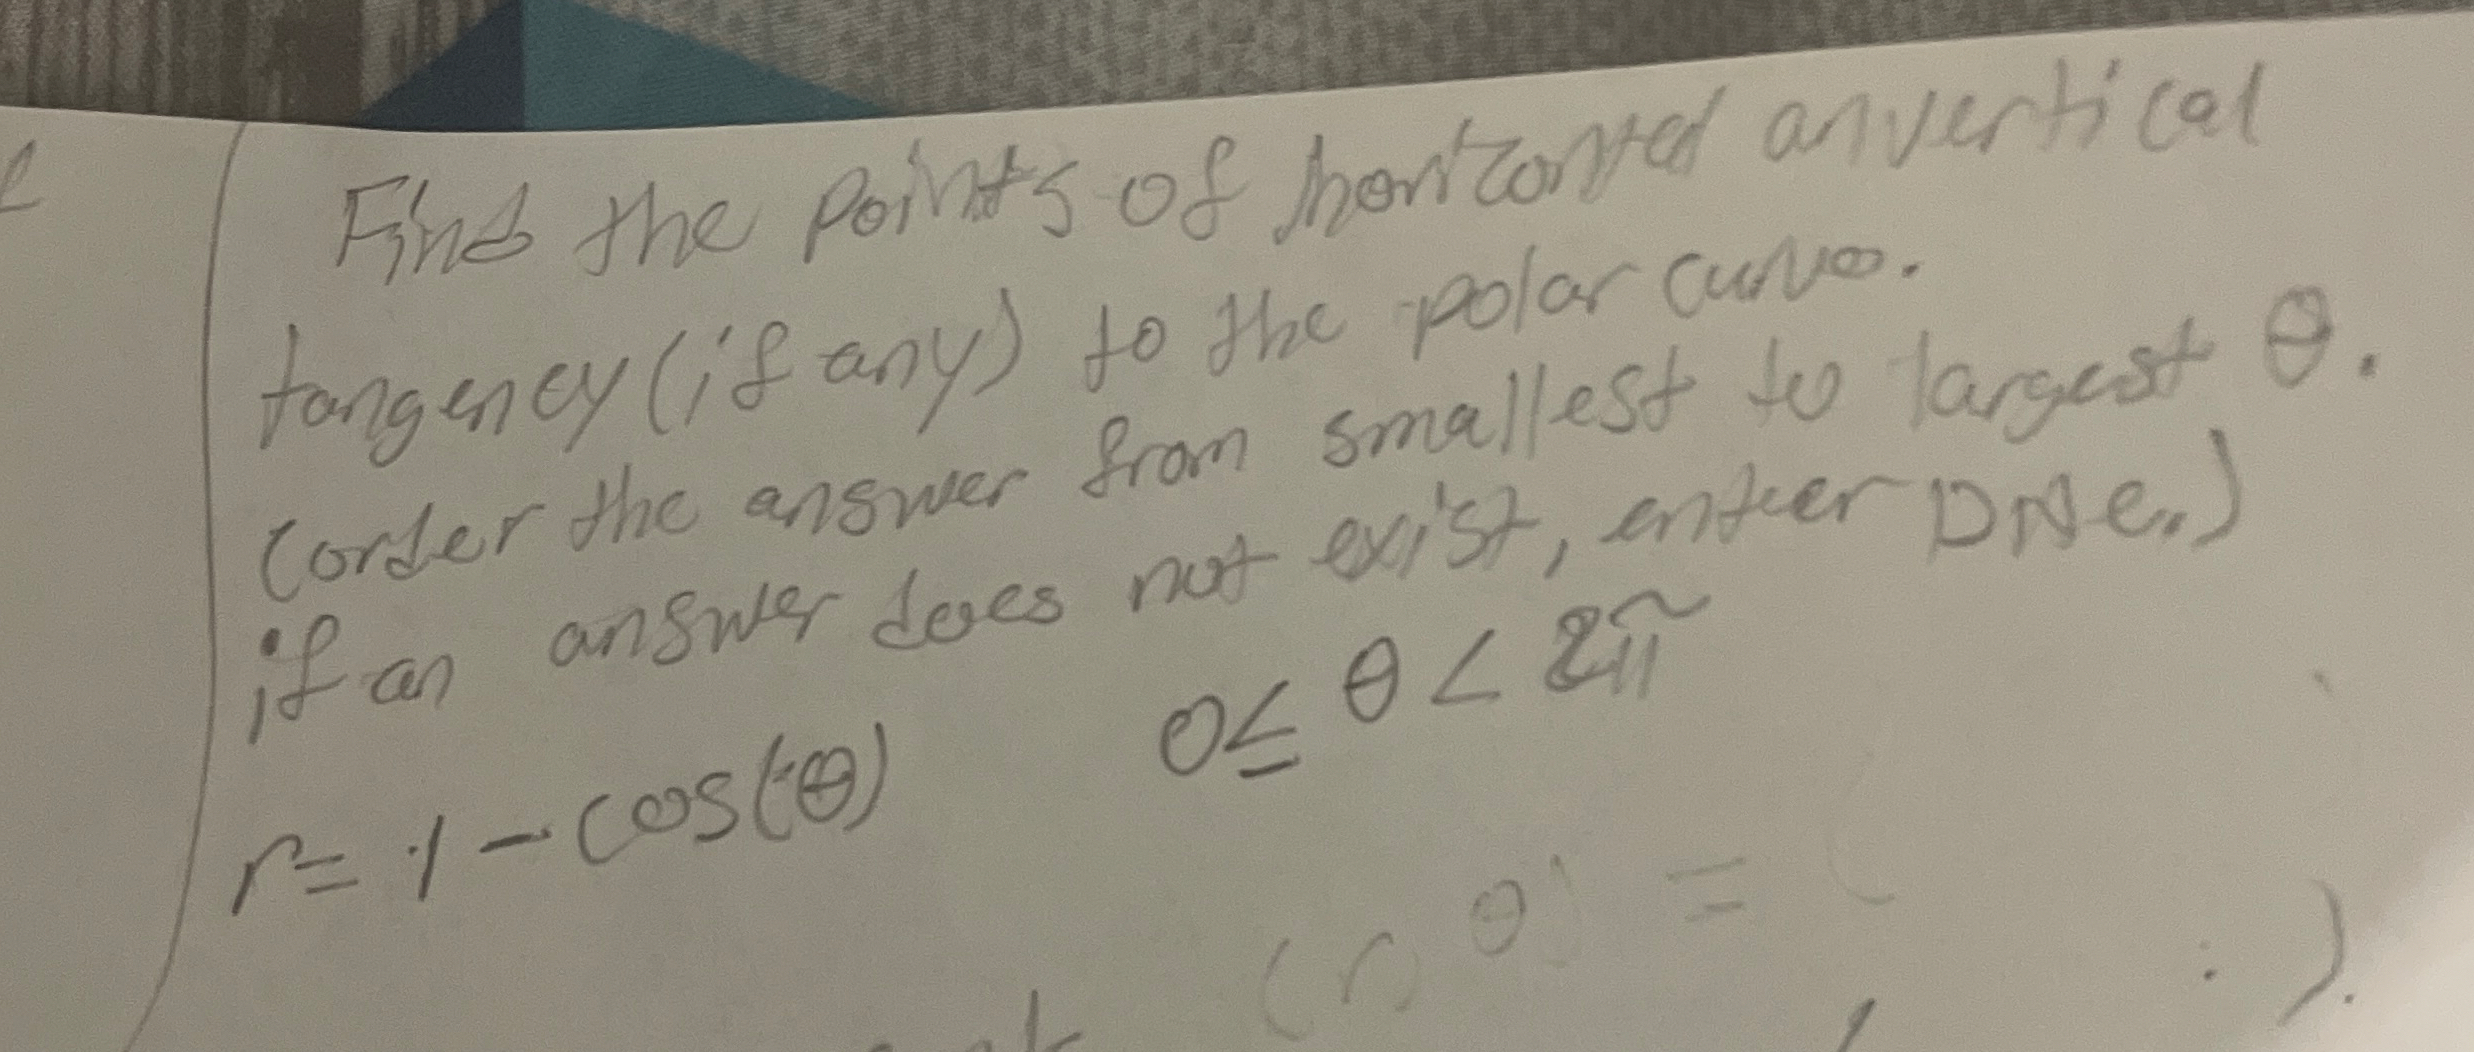 Find the points of horizontal an vertical
tangency (if any) to the polar curve.
(order the answer from smallest to largest θ.
if an answer does not exist, enter DNE.)
r = 1 - cos(θ) 0 ≤ θ < 2π
(r, θ) = ( , ).